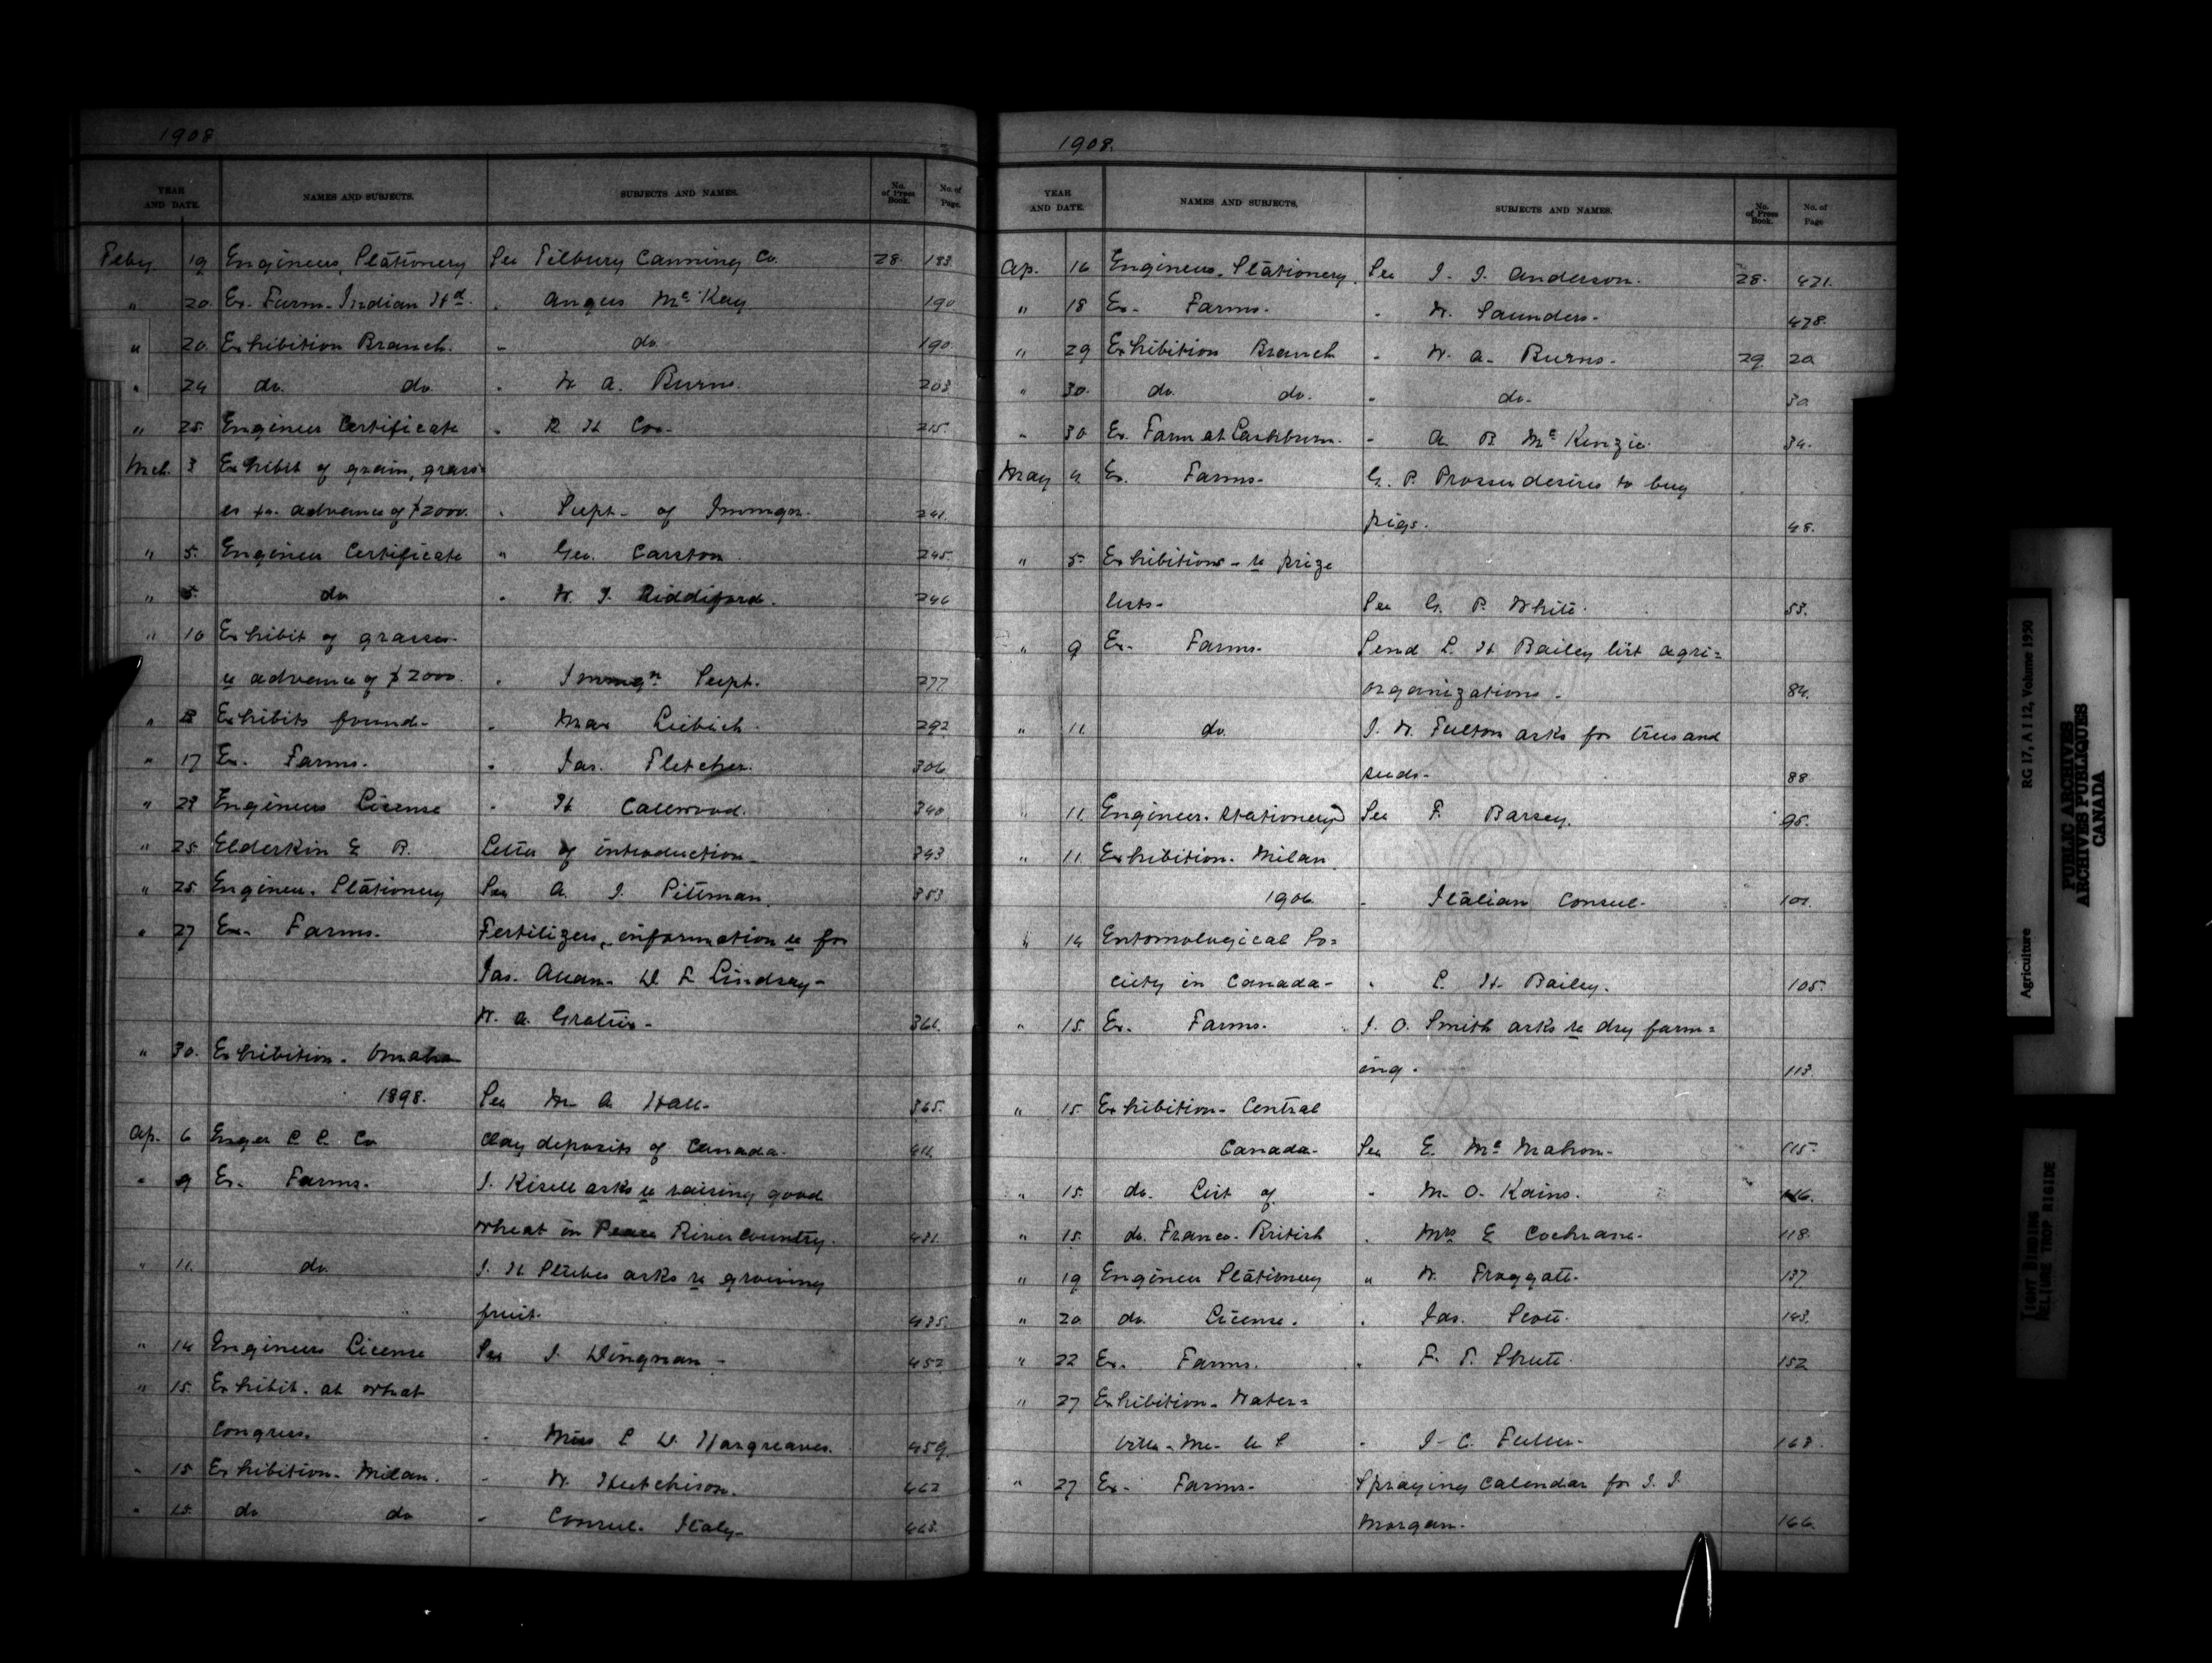 1908
YEAR AND DATE. NAMES AND SUBJECTS. SUBJECTS AND NAMES. No. of Press Book. No. of Page.
Feby. 19 Engineers, Stationery See Tilbury Canning Co. 28. 183
" 20. Ex. Farm - Indian Hd. " Angus McKay 190
" 20. Exhibition Branch. " do 190.
" 24 do. do " W A. Burns. 203
" 25. Engineer Certificate " R H Cox- 215.
Mch. 3 Exhibit of grain, grass
es for advance of $2000. " Supt- of Immgn. 241.
" 5. Engineer Certificate " Geo. Carston 245.
" 5. do " W. J. Riddiford. 246
" 10 Exhibit of grasses-
re advance of $2000. " Immgn Supt. 277
" Exhibits found- " Max Liebich. 292
" 17 Ex. Farms. " Jas. Fletcher. 306
" 23 Engineers License " H Calewood. 340
" 25 Elderkin E B. Letter of introduction- 343
" 25. Engineer. Stationery See A. J. Pittman. 353
" 27 Ex- Farms. Fertilizers, information re for
Jas. Allan- D L Lindsay-
W. A. Gratin- 361.
" 30. Exhibition. Omaha
1898. See M- A Hall- 365.
Ap. 6 Enger C C. Co Clay deposits of Canada. 411.
" 9 Ex. Farms. J. Kisell asks re raising good
wheat in Peace River Country. 431.
" 11. do. J. H. Stubes asks re growing
fruit. 435.
" 14 Engineers License See J. Dingman- 452
" 15. Exhibit. at what
Congress. " Miss L D. Hargreaves. 459.
" 15 Exhibition- Milan. " W. Hutchison. 462
" 15. do do " Consul. Italy- 463.
1908.
YEAR AND DATE. NAMES AND SUBJECTS, SUBJECTS AND NAMES. No. of Press Book. No. of Page
Ap. 16 Engineers. Stationery. See J. J. Anderson. 28. 471.
" 18 Ex- Farms. " W. Saunders- 478.
" 29 Exhibition Branch " W. A- Burns. 29 20
" 30. do. do. " do- 30.
" 30 Ex. Farm at Lashburn. " A B McKenzie. 34.
May 4 Ex. Farms- G. P. Prosser desires to buy
pigs. 48.
" 5. Exhibitions- re prize
lists- See G. P. White. 53.
" 9 Ex- Farms- Send L. H Bailey list agri=
organizations. 84.
" 11. do. J. W. Fulton asks for trees and
seeds- 88
" 11. Engineer. Stationery See F. Barsey. 95.
" 11. Exhibition. Milan
1906. " Italian Consul- 101.
" 14 Entomological So=
ciety in Canada- " L. H- Bailey. 105.
" 15. Ex. Farms. J. O. Smith asks re dry farm=
ing. 113.
" 15. Exhibition- Central
Canada- See E. McMahon- 115-
" 15. do. List of " M- O- Kains. 116.
" 15. do. Franco-British " Mrs E Cochrane- 118.
" 19 Engineer Stationery " W. Froggatt- 137
" 20 do. License. " Jas. Scott. 143.
" 22 Ex. Farms. " F. T. Shutt. 152
" 27 Exhibition- Water=
ville- Me- U S " J- C. Fuller- 168
" 27 Ex- Farms- Spraying Calendar for J. J.
Morgan- 166.
Agriculture RG 17, A I 12, Volume 1950
PUBLIC ARCHIVES
ARCHIVES PUBLIQUES
CANADA
TIGHT BINDING
RELIURE TROP RIGIDE